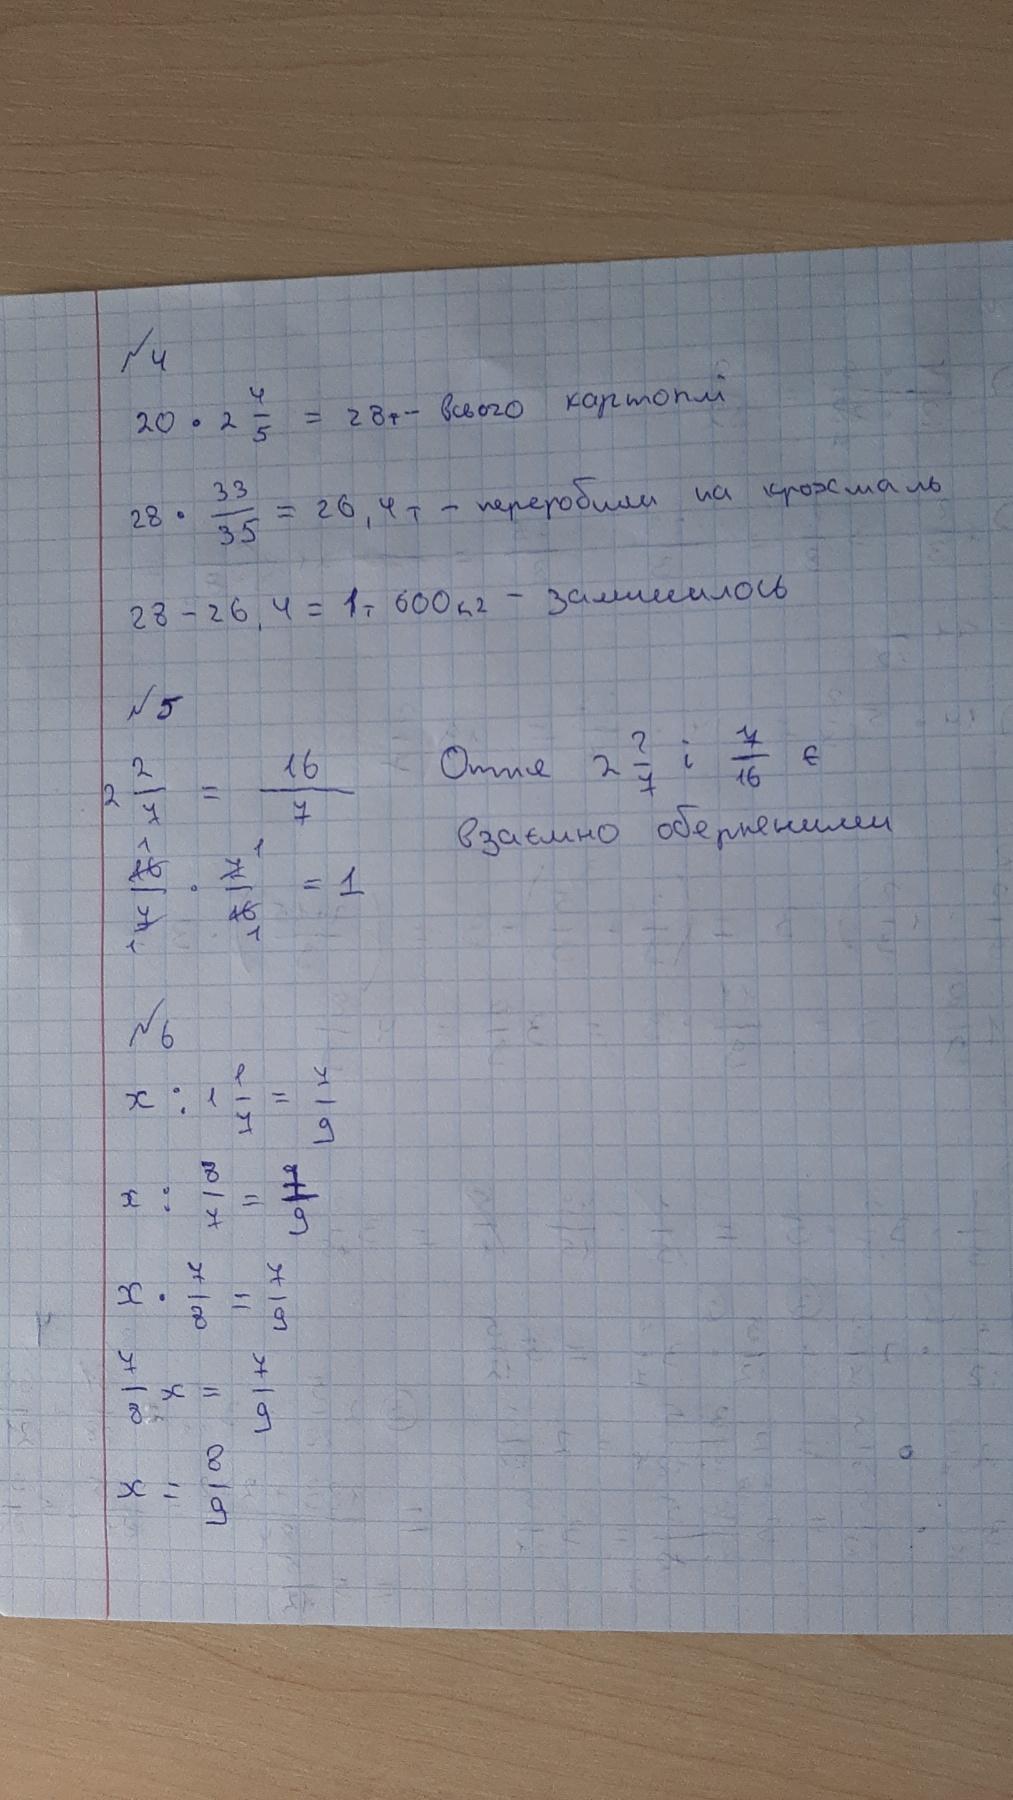 №4
20 · 2 4/5 = 28т - всього картоплі
28 · 33/35 = 26,4т - переробили на крохмаль
28 - 26,4 = 1т 600кг - залишилось
№5
2 2/7 = 16/7 Отже 2 2/7 і 7/16 є
взаємно оберненими
16/7 · 7/16 = 1
№6
x : 1 1/7 = 7/9
x : 8/7 = 7/9
x · 7/8 = 7/9
7/8 x = 7/9
x = 8/9